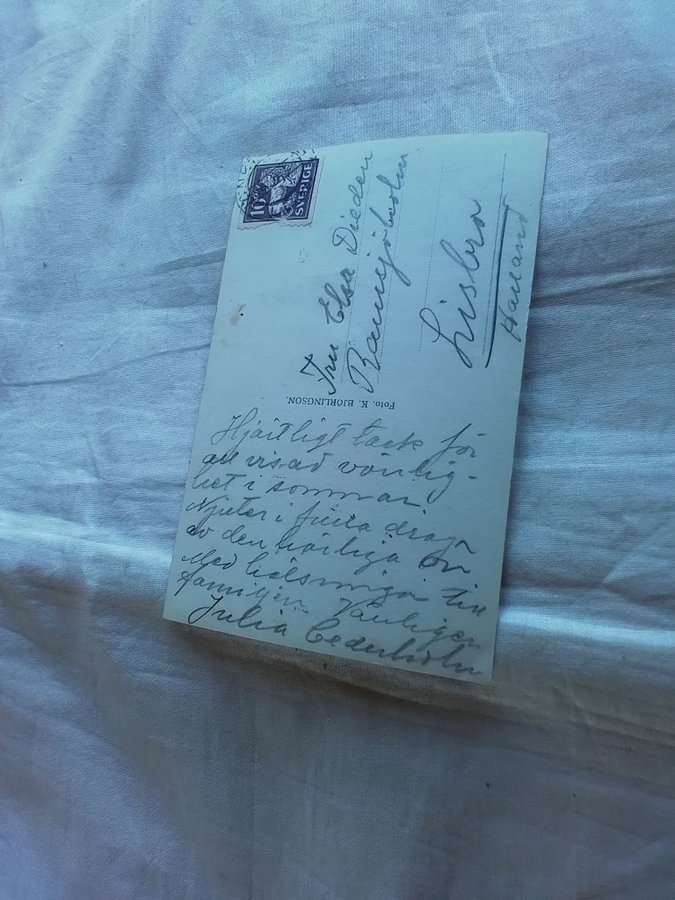 10 ÖRE
SVERIGE
Fru Elsa Dieden
Ramsjöholm
Lisbro
Halland
Foto. K. BJORLINGSON.
Hjärtligt tack för
all visad vänlig-
het i sommar.
Njuter i fulla drag
av den härliga ön
Med hälsningar till
familjen. Vänligen
Julia Cederholm